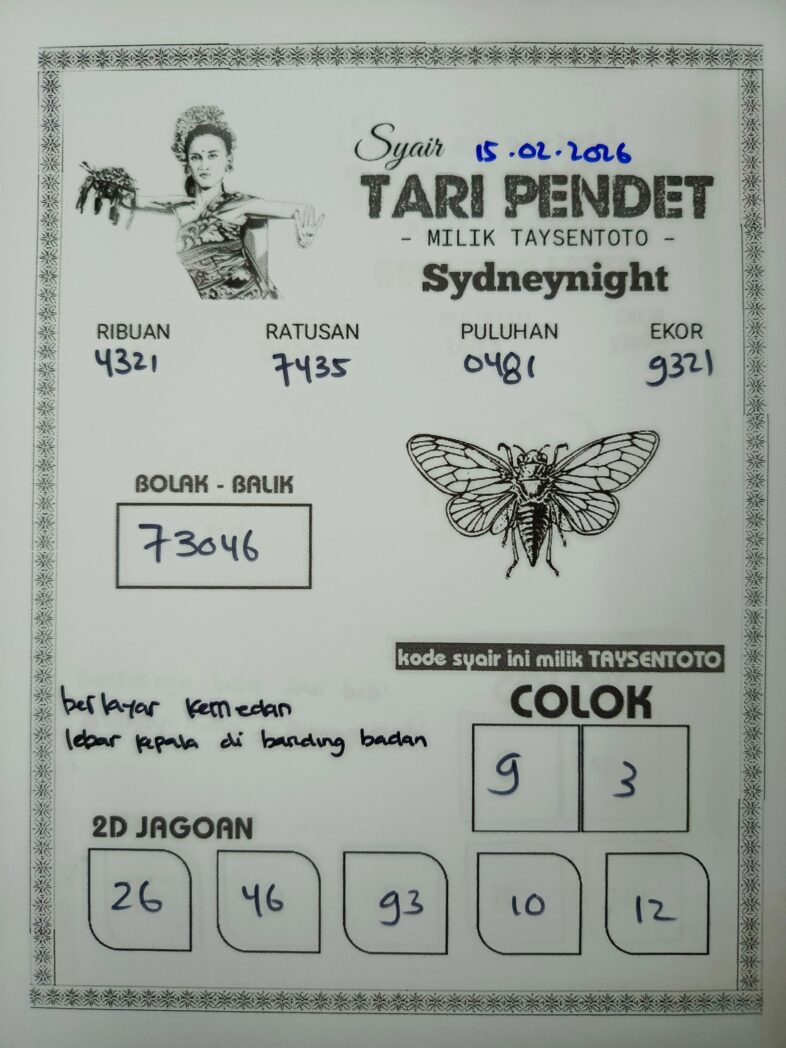 Syair 15.02.2026
TARI PENDET
- MILIK TAYSENTOTO -
Sydneynight
RIBUAN RATUSAN PULUHAN EKOR
4321 7435 0481 9321
BOLAK - BALIK
73046
kode syair ini milik TAYSENTOTO
berlayar kemedan
lebar kepala di banding badan
COLOK
9 3
2D JAGOAN
26 46 93 10 12